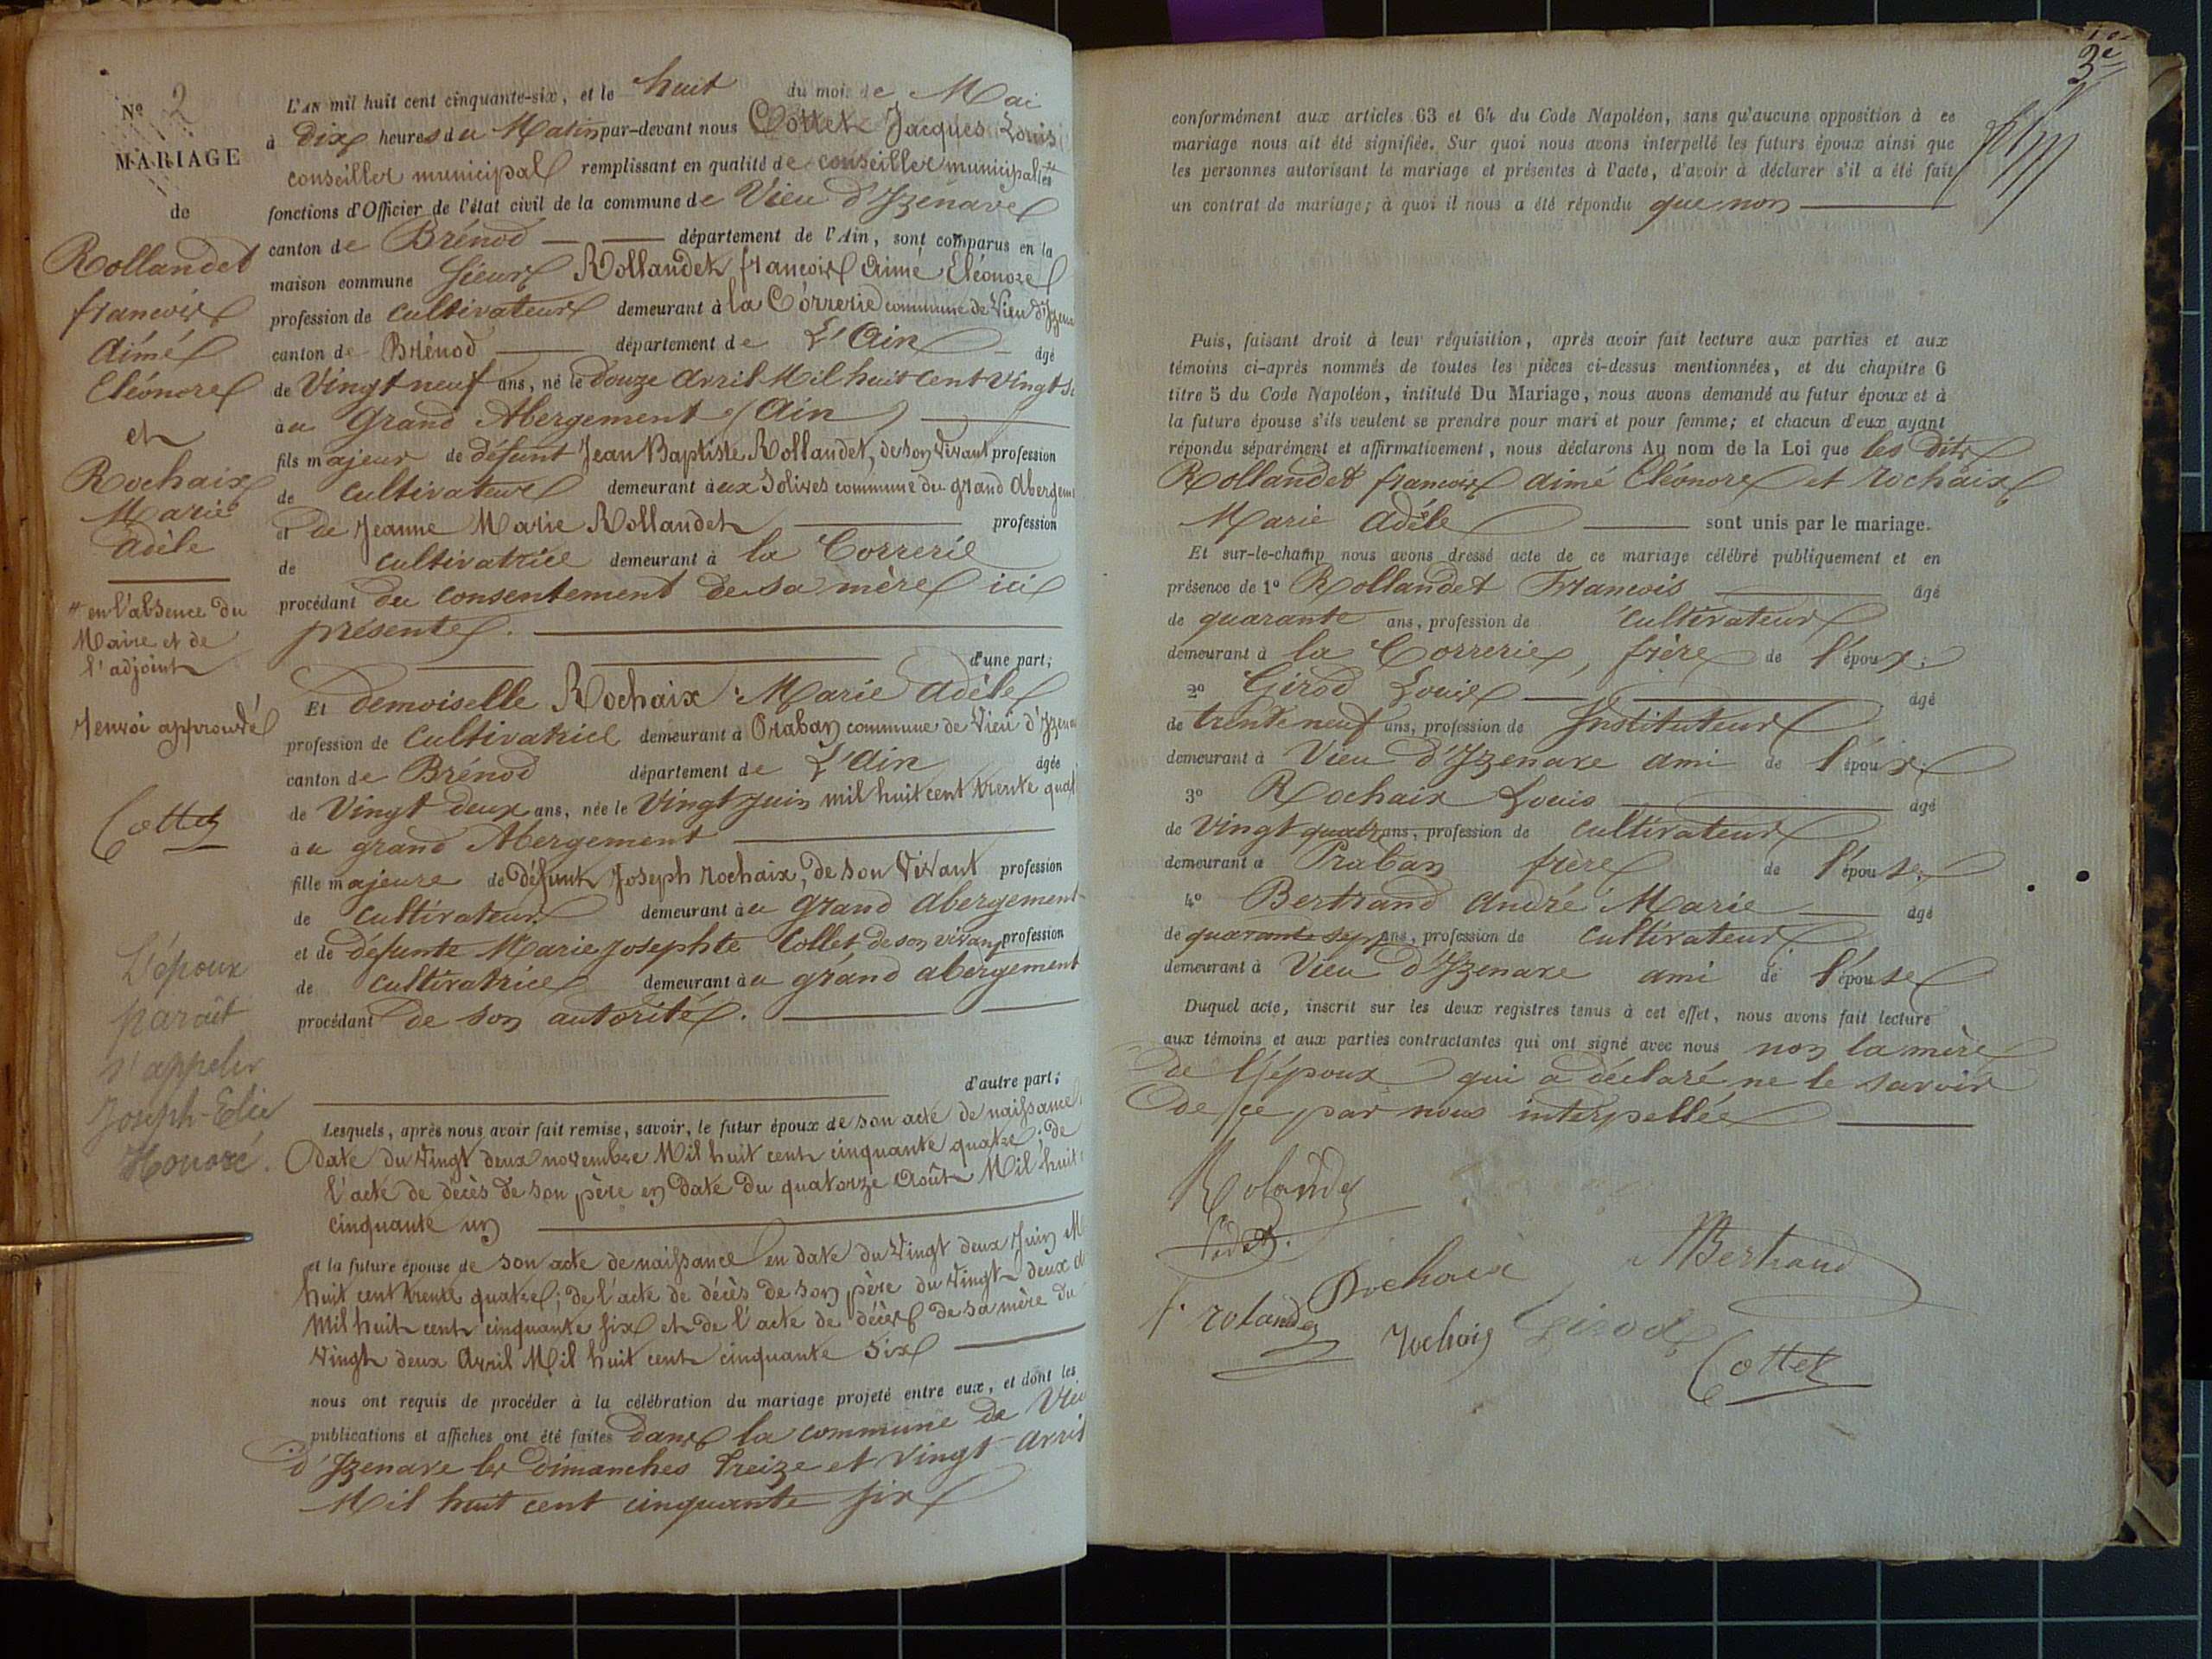 N° 2
MARIAGE
de
Rollandet
françois
Aimé
Eléonore
et
Rochaix
Marie
Adèle
# en l'absence du
Maire et de
l'adjoint
renvoi approuvé
Cottet
L'époux
paraît
s'appeler
Joseph-Elie
Honoré.
L'AN mil huit cent cinquante-six, et le huit du mois de Mai
à Dix heures du Matin par-devant nous Cottet Jacques Louis
conseiller municipal remplissant en qualité de conseiller municipal les #
fonctions d'Officier de l'état civil de la commune de Vieu d'Izenave
canton de Brénod département de l'Ain, sont comparus en la
maison commune Sieur Rollandet françois Aimé Eléonore
profession de cultivateur demeurant à la Correrie commune de Vieu d'Izena
canton de Brénod département de L'Ain âgé
de Vingt neuf ans, né le Douze Avril Mil huit Cent Vingt
à au Grand Abergement (Ain)
fils majeur de défunt Jean Baptiste Rollandet, de son vivant profession
de cultivateur demeurant à aux Solives commune du grand Abergem
et de Jeanne Marie Rollandet profession
de cultivatrice demeurant à la Correrie
procédant du consentement de sa mère ici
présente.
d'une part;
Et demoiselle Rochaix Marie Adèle
profession de Cultivatrice demeurant à Praban commune de Vieu d'Izena
canton de Brénod département de L'Ain âgée
de Vingt deux ans, née le Vingt Juin mil huit cent trente quat
à au grand Abergement
fille majeure de défunt Joseph Rochaix, de son Vivant profession
de cultivateur demeurant à au grand abergement
et de défunte Marie Josephte Collet, de son vivant profession
de cultivatrice demeurant à au grand abergement
procédant de son autorité.
d'autre part;
Lesquels, après nous avoir fait remise, savoir, le futur époux de son acte de naissance
date du Vingt deux novembre Mil huit cent cinquante quatre; de
l'acte de décès de son père en Date du quatorze Août Mil huit
cinquante un
et la future épouse de son acte de naissance en date du Vingt deux Juin M
huit cent trente quatre; de l'acte de décès de son père du Vingt deux
Mil huit cent cinquante six et de l'acte de décès de sa mère du
Vingt deux Avril Mil huit cent cinquante Six
nous ont requis de procéder à la célébration du mariage projeté entre eux, et dont les
publications et affiches ont été faites dans la commune de Vieu
d'Izenave les dimanches treize et vingt Avril
Mil huit cent cinquante six
3e
conformément aux articles 63 et 64 du Code Napoléon, sans qu'aucune opposition à ce
mariage nous ait été signifiée. Sur quoi nous avons interpellé les futurs époux ainsi que
les personnes autorisant le mariage et présentes à l'acte, d'avoir à déclarer s'il a été fait
un contrat de mariage; à quoi il nous a été répondu que non
Puis, faisant droit à leur réquisition, après avoir fait lecture aux parties et aux
témoins ci-après nommés de toutes les pièces ci-dessus mentionnées, et du chapitre 6
titre 5 du Code Napoléon, intitulé Du Mariage, nous avons demandé au futur époux et à
la future épouse s'ils veulent se prendre pour mari et pour femme; et chacun d'eux ayant
répondu séparément et affirmativement, nous déclarons Au nom de la Loi que les dits
Rollandet françois Aimé Eléonore et Rochaix
Marie Adèle sont unis par le mariage.
Et sur-le-champ nous avons dressé acte de ce mariage célébré publiquement et en
présence de 1° Rollandet François âgé
de quarante ans, profession de cultivateur
demeurant à la Correrie, frère de l'époux;
2° Girod Louis âgé
de trente neuf ans, profession de Instituteur
demeurant à Vieu d'Izenave ami de l'époux;
3° Rochaix Louis âgé
de Vingt quatre ans, profession de cultivateur
demeurant à Praban frère de l'épouse;
4° Bertrand André Marie âgé
de quarante sept ans, profession de cultivateur
demeurant à Vieu d'Izenave ami de l'épouse
Duquel acte, inscrit sur les deux registres tenus à cet effet, nous avons fait lecture
aux témoins et aux parties contractantes qui ont signé avec nous non la mère
de l'époux qui a déclaré ne le savoir
de ce par nous interpellée
Rolandez
Bertrand
Rochaix
f. rolandez
rochaix Girod
Cottet